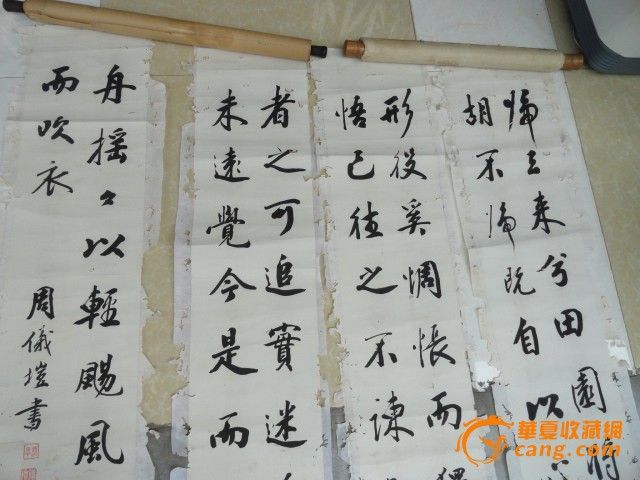 歸去来兮田園將
胡不歸既自以
形役奚惆悵而
悟已往之不諫
者之可追實迷
未遠覺今是而
舟摇々以輕颺風
而吹衣
周儀塏書
華夏收藏網
cang.com